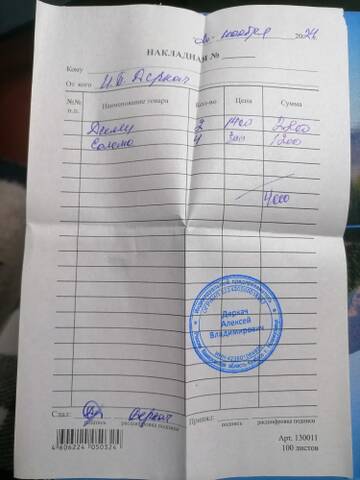 ноября 2021
НАКЛАДНАЯ №
Кому
От кого И.П. Деркач
№№ п.п. Наименование товара Кол-во Цена Сумма
2 1400 2800
Солома 4 300 1200
4000
Индивидуальный предприниматель
Деркач
Алексей
Владимирович
Сдал: Деркач Принял:
подпись расшифровка подписи подпись расшифровка подписи
Арт. 130011
100 листов
4 606224 050324